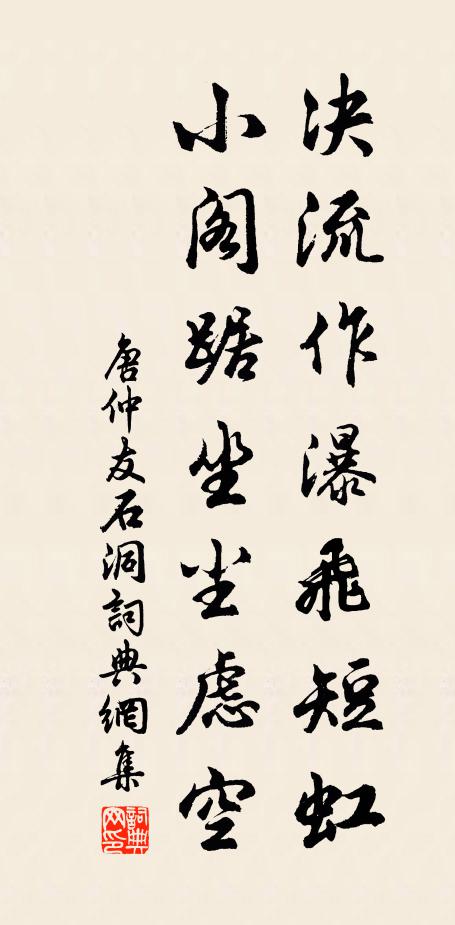 决流作瀑飛短虹
小阁踞坐尘虑空
唐仲友石洞詞典網集
詞典网印